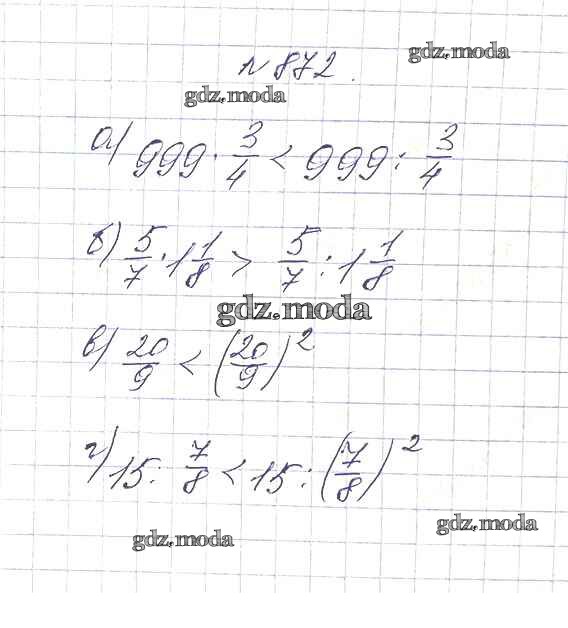 gdz.moda
№872.
gdz.moda
а) 999 · 3/4 < 999 : 3/4
б) 5/7 · 1 1/8 > 5/7 : 1 1/8
gdz.moda
в) 20/9 < (20/9)²
г) 15 : 7/8 < 15 : (7/8)²
gdz.moda
gdz.moda